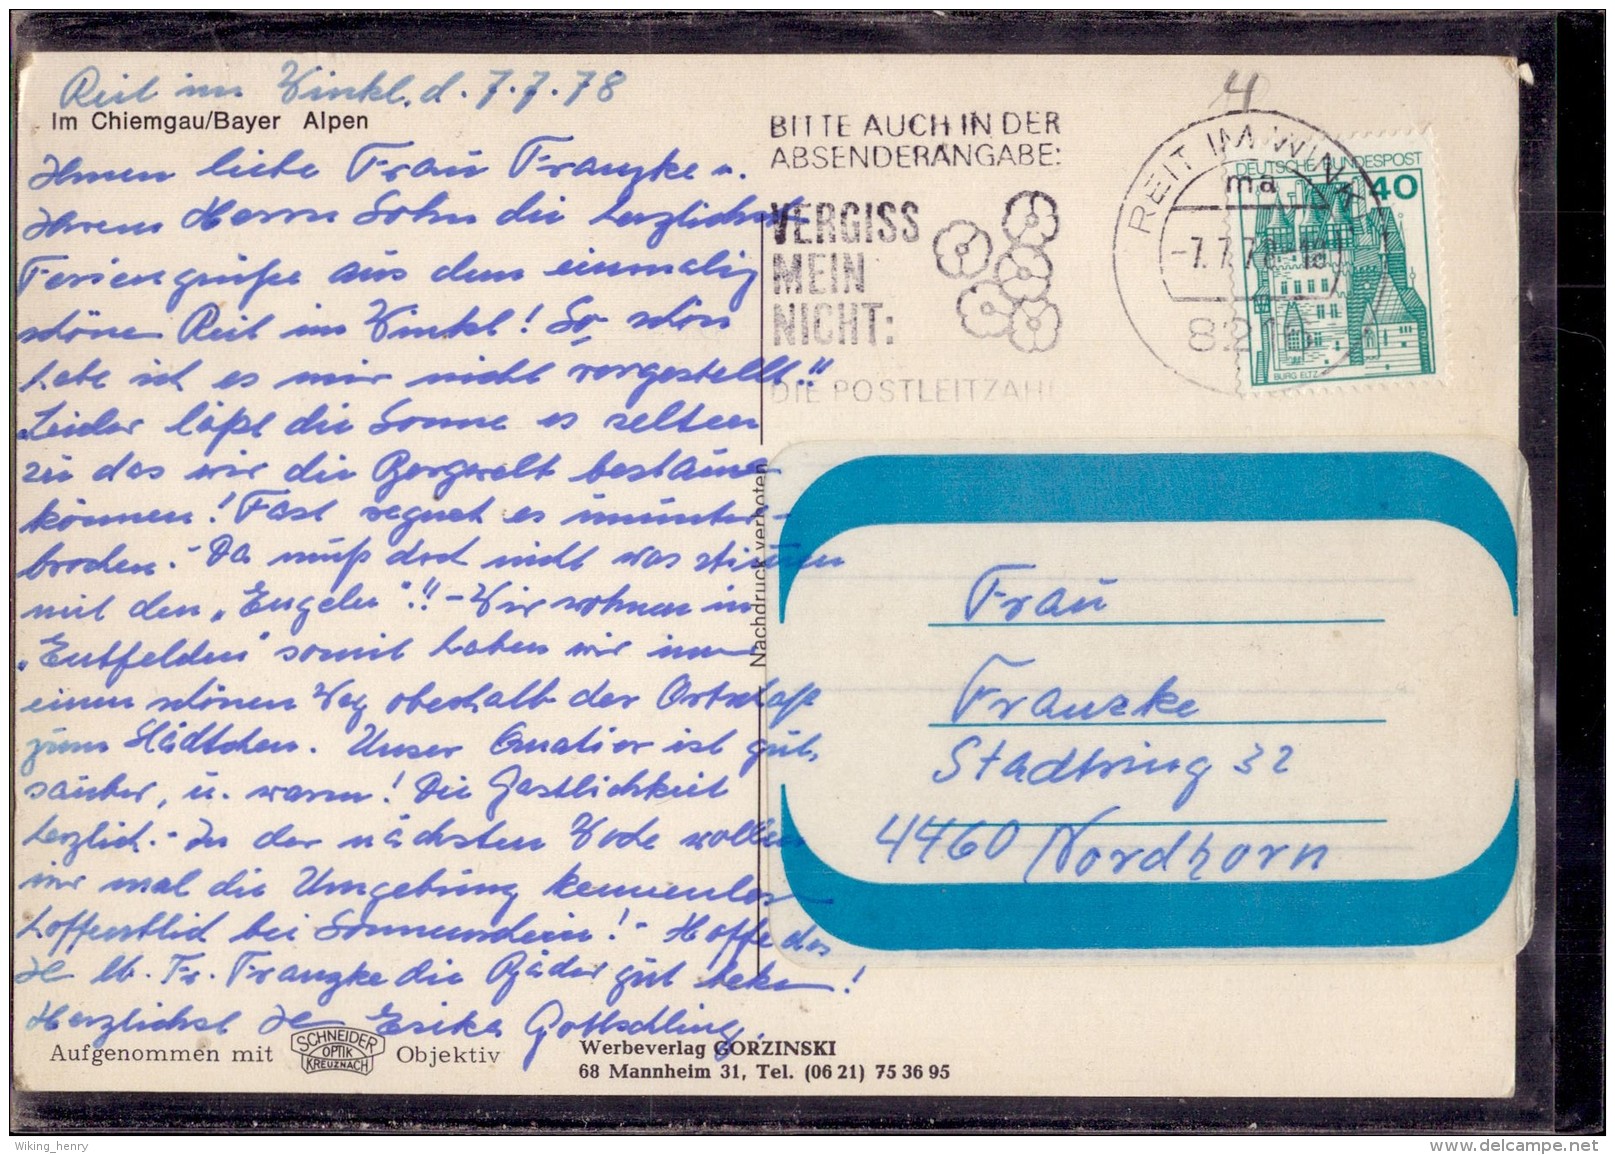 Reit im Winkl, d. 7.7.78
Im Chiemgau/Bayer Alpen
Ihnen liebe Frau Franzke u.
Ihrem Herrn Sohn die herzlichst
Feriengrüße aus dem einmalig
schönen Reit im Winkl! So schön
habe ich es mir nicht vorgestellt!!
Leider läßt die Sonne es selten
zu das wir die Bergwelt bestaunen
können! Fast regnet es ununter-
brochen. - Da muß doch nicht was stimmen
mit den „Engeln"!! - Wir wohnen in
„Entfelden" somit haben wir immer
einen schönen Weg oberhalb der Ortschaft
zum Städtchen. Unser Quatier ist gut,
sauber, u. warm! Die Gastlichkeit
herzlich. - In der nächsten Woche wollen
wir mal die Umgebung kennenlernen
hoffentlich bei Sonnenschein! - Hoffe das
lb. Fr. Franzke die Bäder gut
Herzlichst Erika Gottschling.
Aufgenommen mit SCHNEIDER OPTIK KREUZNACH Objektiv
Werbeverlag GORZINSKI
68 Mannheim 31, Tel. (06 21) 75 36 95
Nachdruck verboten
4
BITTE AUCH IN DER
ABSENDERANGABE:
VERGISS
MEIN
NICHT:
DIE POSTLEITZAHL
REIT IM WINKL
ma
-7.7.78-18
8216
DEUTSCHE BUNDESPOST
40
BURG ELTZ
Frau
Franzke
Stadtring 32
4460 Nordhorn
Wiking_henry
www.delcampe.net